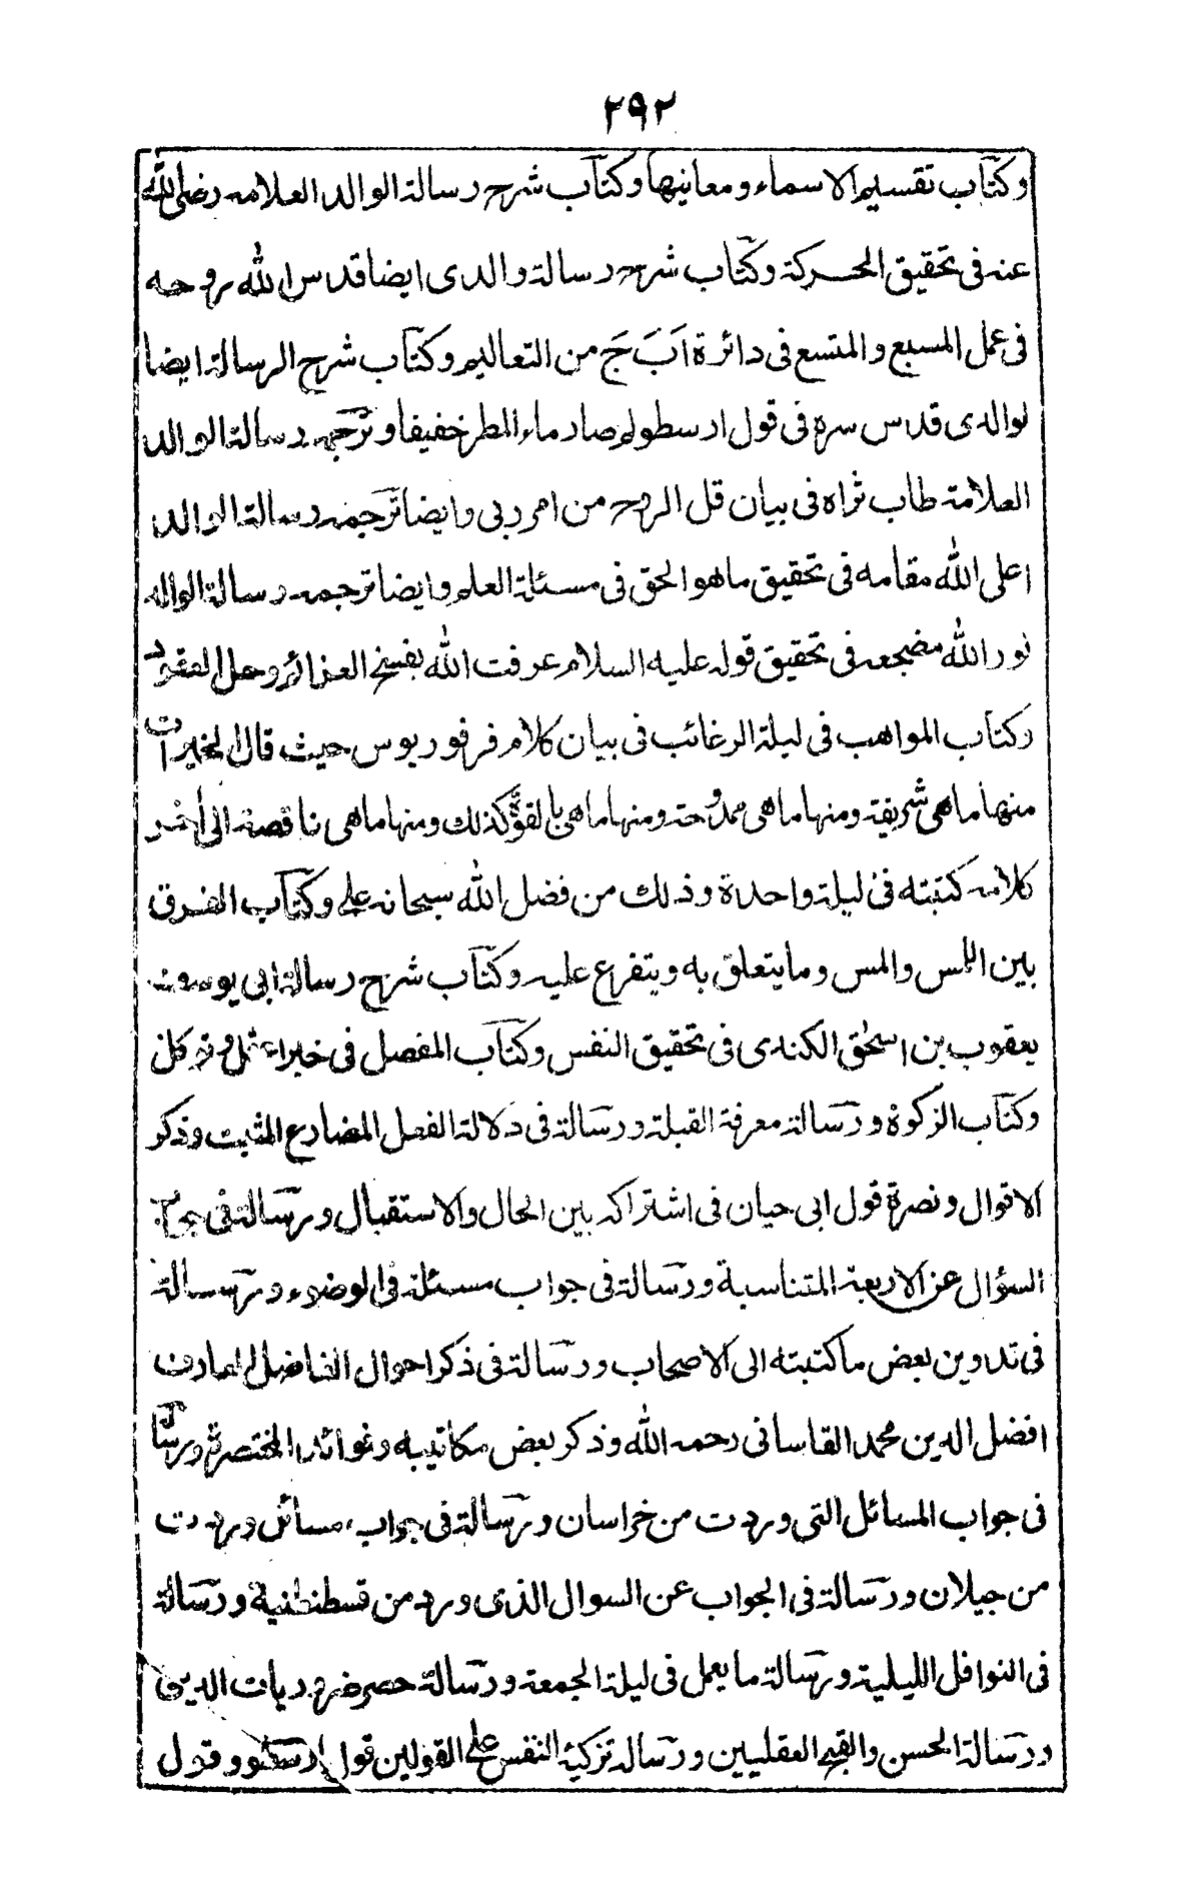 ٢٩٢
وكتاب تقسيم الاسماء ومعانيها وكتاب شرح رسالة الوالد العلامه رضى الله
عنه فى تحقيق الحركة وكتاب شرح رسالة والدى ايضا قدس الله روحه
فى عمل المسبع والمتسع فى دائرة اَبَ جَ من التعاليم وكتاب شرح الرسالة ايضا
لوالدى قدس سره فى قول ارسطو لم صار ماء المطر خفيفا وترجمه رسالة الوالد
العلامة طاب ثراه فى بيان قل الروح من امر ربى وايضا ترجمه رسالة الوالد
اعلى الله مقامه فى تحقيق ماهو الحق فى مسئلة العلم وايضا ترجمه رسالة الوالد
نور الله مضجعه فى تحقيق قوله عليه السلام عرفت الله بفسخ العزائم وحل العقود
وكتاب المواهب فى ليلة الرغائب فى بيان كلام فرفوريوس حيث قال الخيرات
منها ماهى شريفة ومنها ماهى ممدوحة ومنها ماهى بالقوة كذلك ومنها ماهى ناقصة الى اخر
كلامه كتبته فى ليلة واحدة وذلك من فضل الله سبحانه على وكتاب الفرق
بين اللمس والمس وما يتعلق به ويتفرع عليه وكتاب شرح رسالة ابى يوسف
يعقوب بن اسحق الكندى فى تحقيق النفس وكتاب المفصل فى خبر اعقل وتوكل
وكتاب الزكوة ورسالة معرفة القبلة ورسالة فى دلالة الفعل المضارع المثبت وذكر
الاقوال ونصرة قول ابى حيان فى اشتراكه بين الحال والاستقبال ورسالة فى جواب
السؤال عن الاربعة المتناسبة ورسالة فى جواب مسئلة فى الوضوء ورسالة
فى تدوين بعض ما كتبته الى الاصحاب ورسالة فى ذكر احوال الفاضل العارف
افضل الدين محمد القاسانى رحمه الله وذكر بعض مكاتيبه وفوائد المختصرة ورسالة
فى جواب المسائل التى وردت من خراسان ورسالة فى جواب مسائل وردت
من جيلان ورسالة فى الجواب عن السوال الذى ورد من قسطنطنية ورسالة
فى النوافل الليلية ورسالة ما يعمل فى ليلة الجمعة ورسالة حصر ضروريات الدين
ورسالة الحسن والقبح العقليين ورسالة تزكية النفس على القولين قول ارسطو وقول